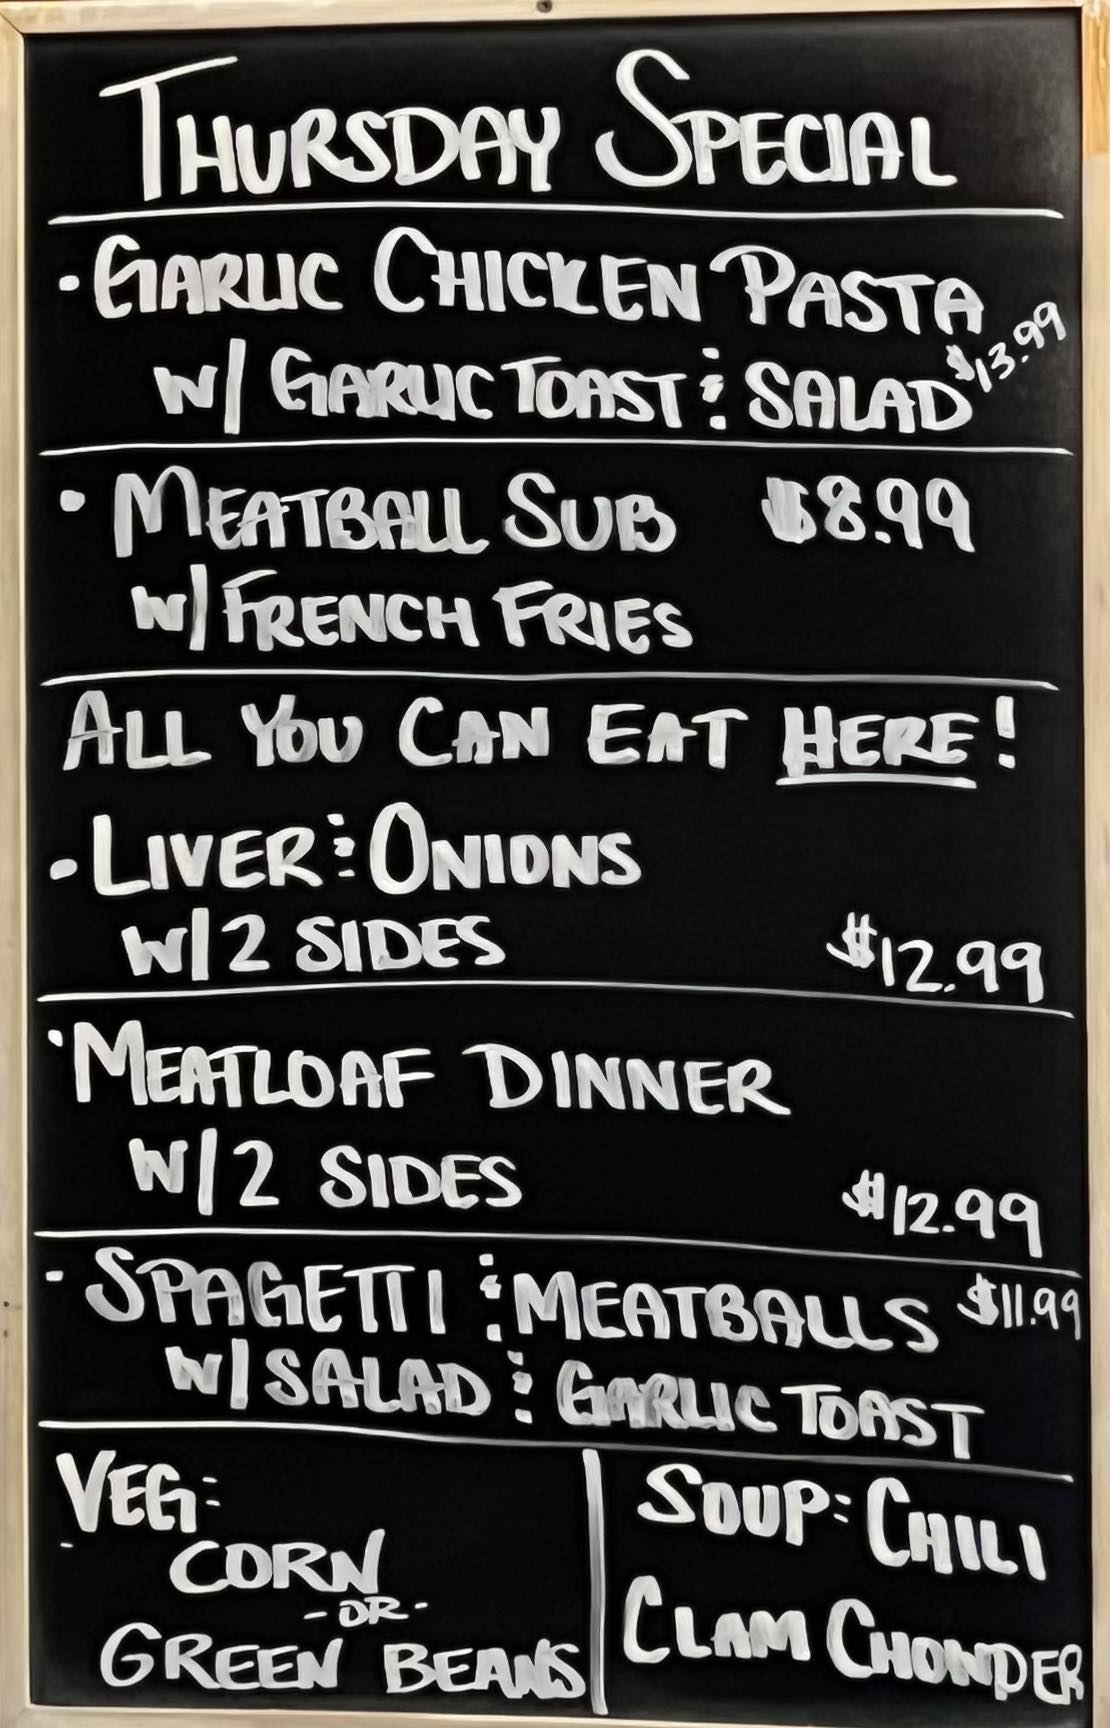 THURSDAY SPECIAL
• GARLIC CHICKEN PASTA
W/ GARLIC TOAST & SALAD $13.99
• MEATBALL SUB $8.99
W/ FRENCH FRIES
ALL YOU CAN EAT HERE!
• LIVER & ONIONS
W/ 2 SIDES $12.99
• MEATLOAF DINNER
W/ 2 SIDES $12.99
• SPAGETTI & MEATBALLS $11.99
W/ SALAD & GARLIC TOAST
VEG:
CORN
-OR-
GREEN BEANS
SOUP: CHILI
CLAM CHOWDER